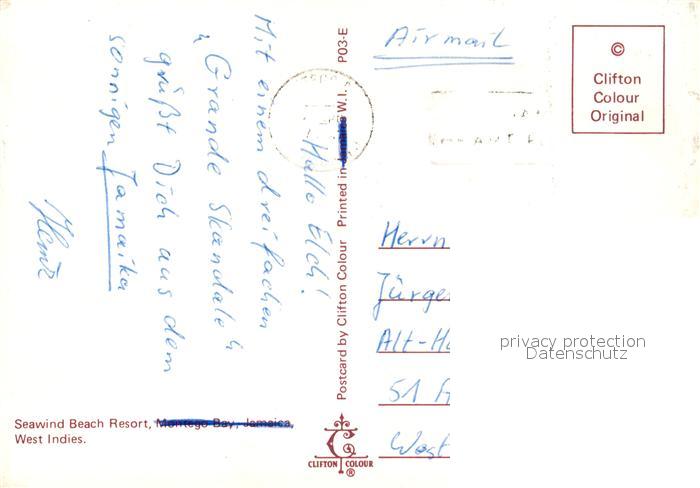 Hallo Elch!
Mit einem dreifachen
„Grande Skandale“
grüßt Dich aus dem
sonnigen Jamaika
Seawind Beach Resort, Montego Bay, Jamaica,
West Indies.
Postcard by Clifton Colour Printed in Jamaica W.I. P03-E
CLIFTON COLOUR
®
Airmail
©
Clifton
Colour
Original
Herrn
Jürge
Alt-H
51
West
privacy protection
Datenschutz